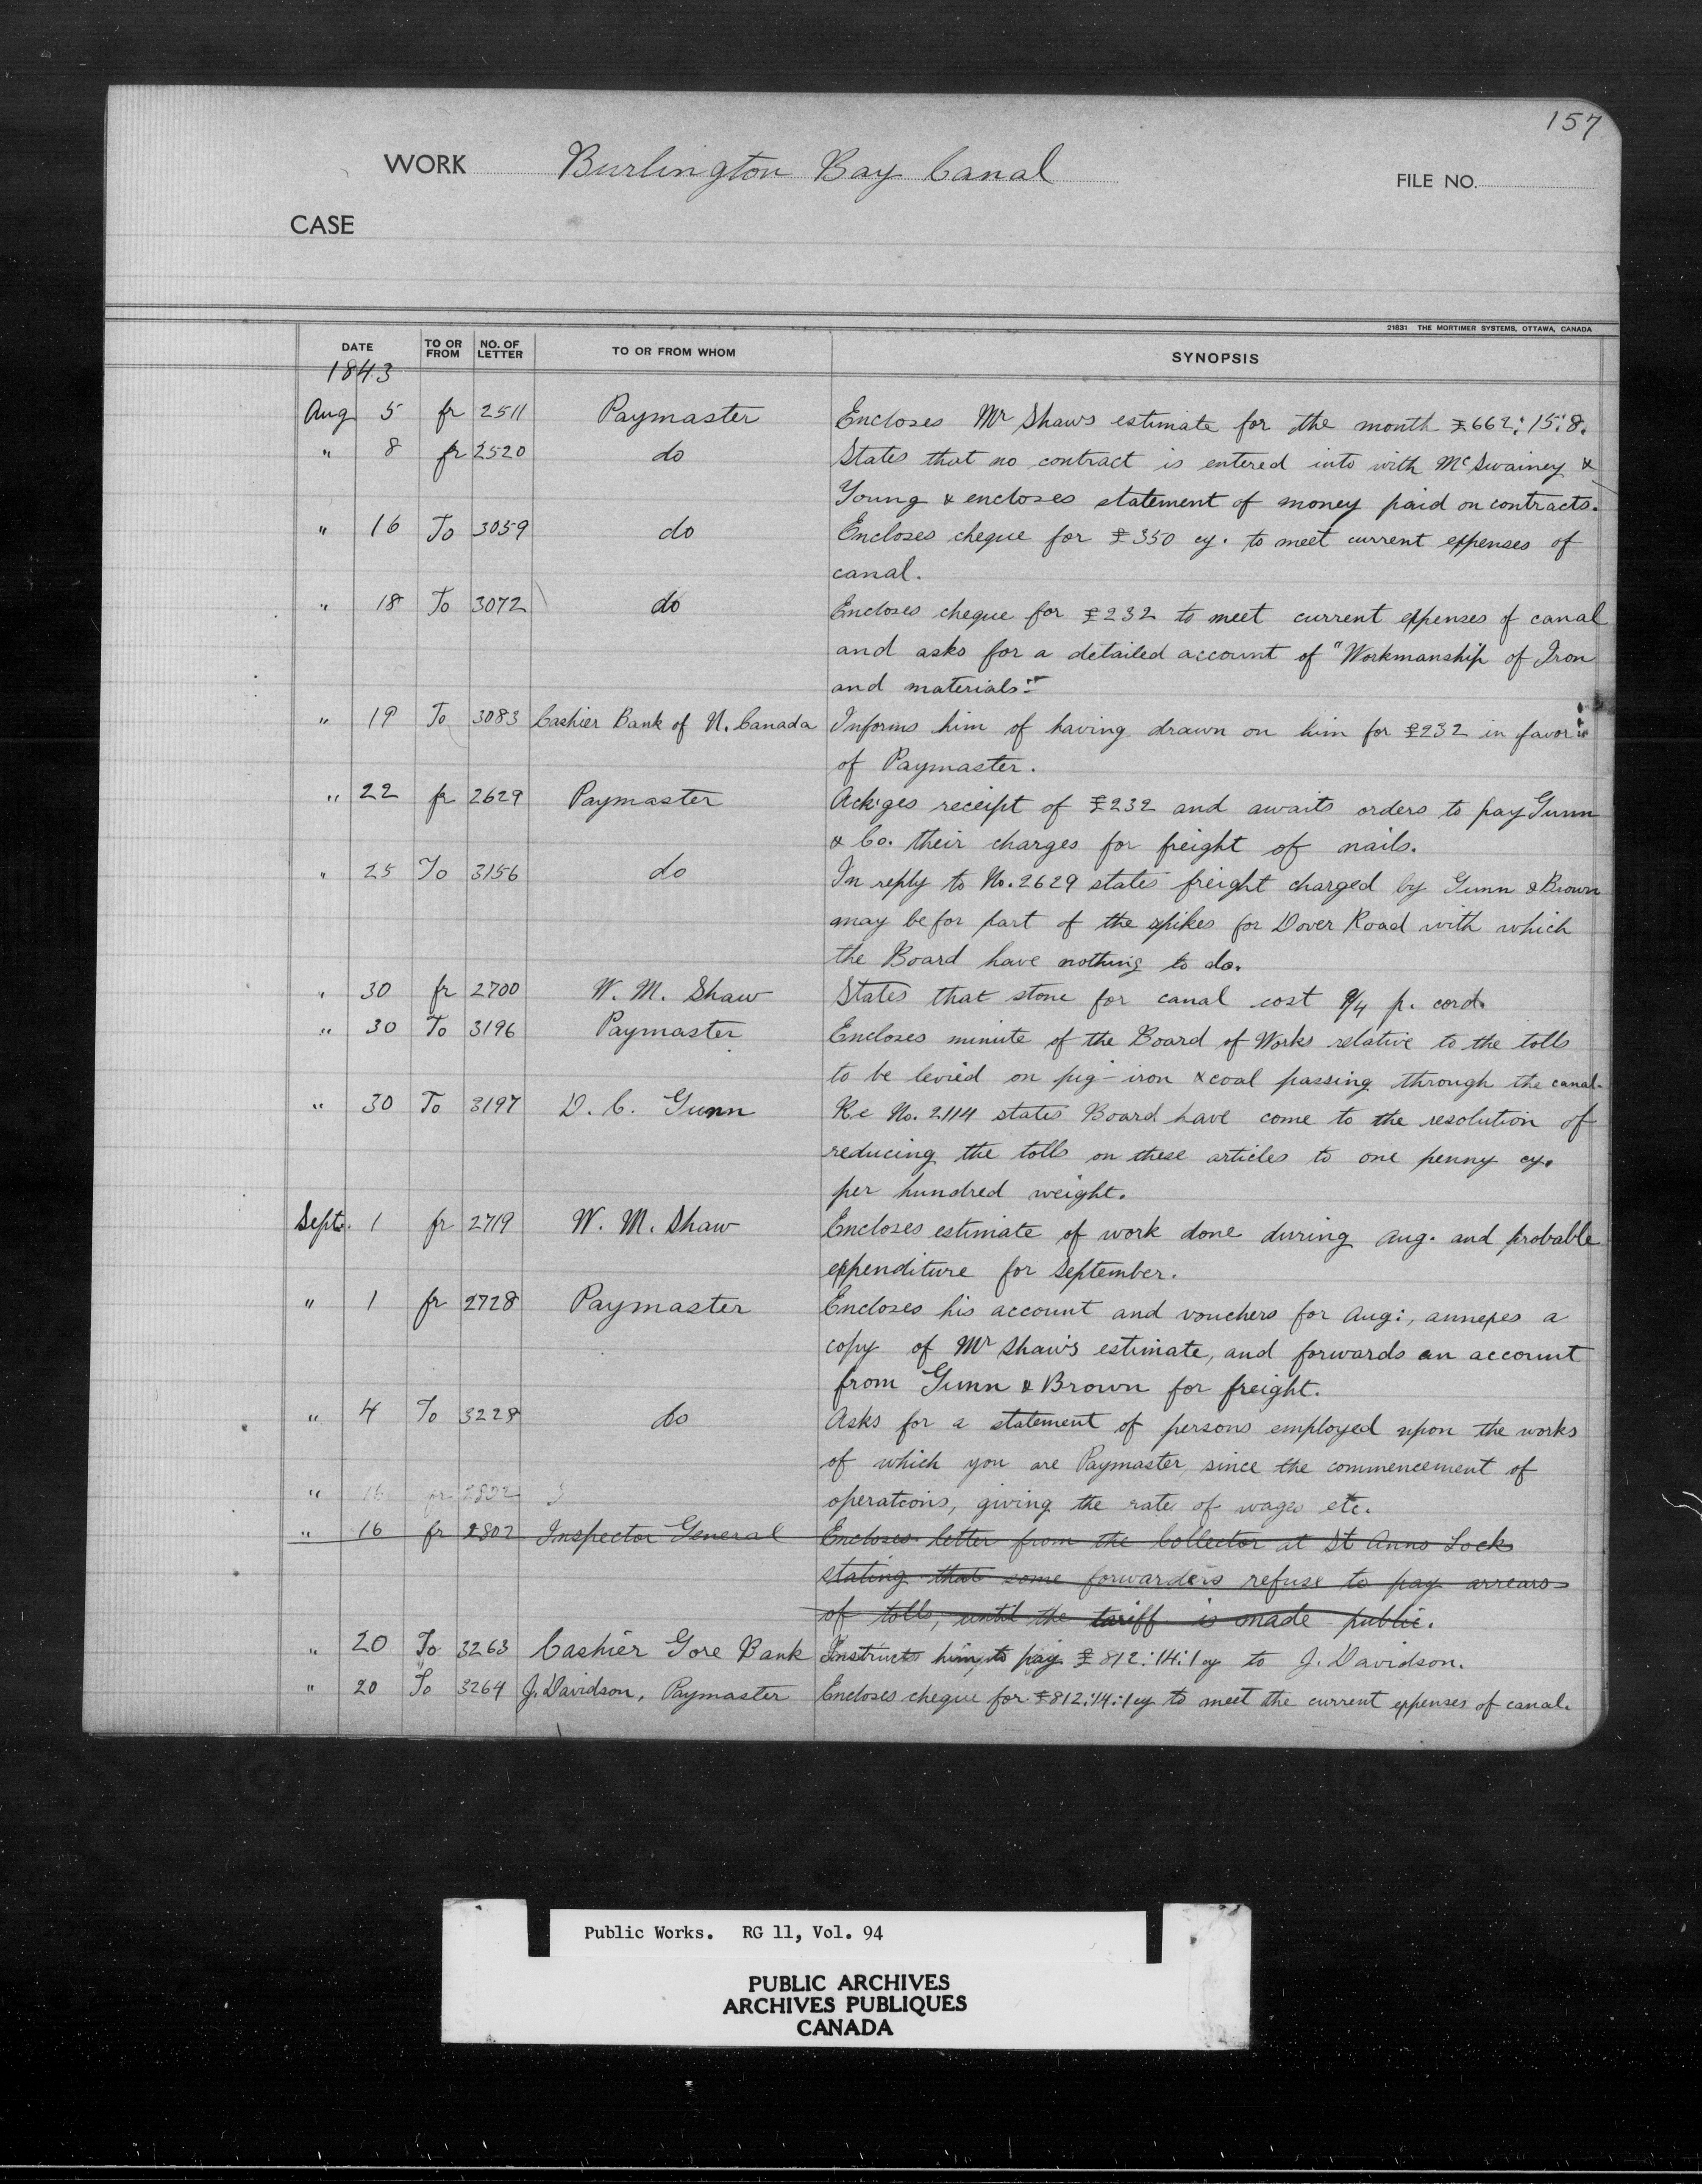 157
WORK Burlington Bay Canal
FILE NO.
CASE
21831 THE MORTIMER SYSTEMS, OTTAWA, CANADA
DATE TO OR FROM NO. OF LETTER TO OR FROM WHOM SYNOPSIS
1843
Aug 5 fr 2511 Paymaster Encloses Mr Shaws estimate for the month £662:15:8.
" 8 fr 2520 do States that no contract is entered into with McSwainey &
Young & encloses statement of money paid on contracts.
" 16 To 3059 do Encloses cheque for £350 cy. to meet current expenses of
canal.
" 18 To 3072 do Encloses cheque for £232 to meet current expenses of canal
and asks for a detailed account of "Workmanship of Iron
and materials"
" 19 To 3083 Cashier Bank of U. Canada Informs him of having drawn on him for £232 in favor
of Paymaster.
" 22 fr 2629 Paymaster Ack'ges receipt of £232 and awaits orders to pay Gunn
& Co. their charges for freight of nails.
" 25 To 3156 do In reply to No. 2629 states freight charged by Gunn & Brown
may be for part of the spikes for Dover Road with which
the Board have nothing to do.
" 30 fr 2700 W. M. Shaw States that stone for canal cost 9/4 p. cord.
" 30 To 3196 Paymaster Encloses minute of the Board of Works relative to the tolls
to be levied on pig-iron & coal passing through the canal.
" 30 To 3197 D. C. Gunn Re No. 2114 states Board have come to the resolution of
reducing the tolls on these articles to one penny cy.
per hundred weight.
Sept. 1 fr 2719 W. M. Shaw Encloses estimate of work done during Aug. and probable
expenditure for September.
" 1 fr 2728 Paymaster Encloses his account and vouchers for Aug:, annexes a
copy of Mr Shaw's estimate, and forwards an account
from Gunn & Brown for freight.
" 4 To 3228 do Asks for a statement of persons employed upon the works
of which you are Paymaster, since the commencement of
operations, giving the rate of wages etc.
" 16 fr 2802
" 16 fr 2802 Inspector General Encloses letter from the Collector at St Anns Lock
stating that some forwarders refuse to pay arrears
of tolls, until the tariff is made public.
" 20 To 3263 Cashier Gore Bank Instructs him to pay £812:14:1 cy to J. Davidson.
" 20 To 3264 J. Davidson, Paymaster Encloses cheque for £812:14:1 cy to meet the current expenses of canal.
Public Works. RG 11, Vol. 94
PUBLIC ARCHIVES
ARCHIVES PUBLIQUES
CANADA